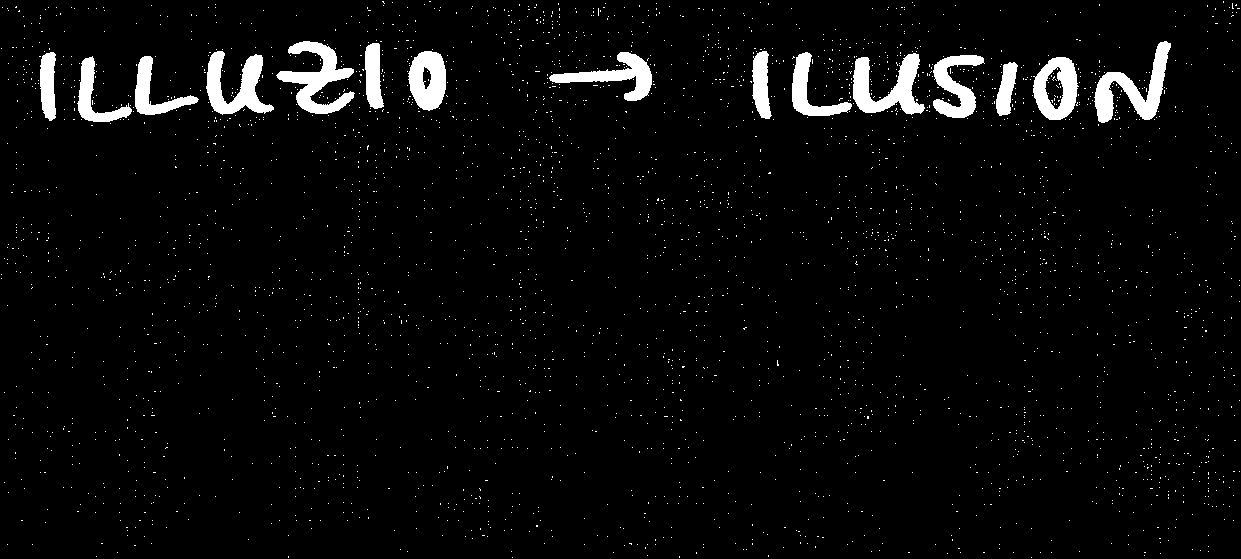 ILLUZIO → ILUSION